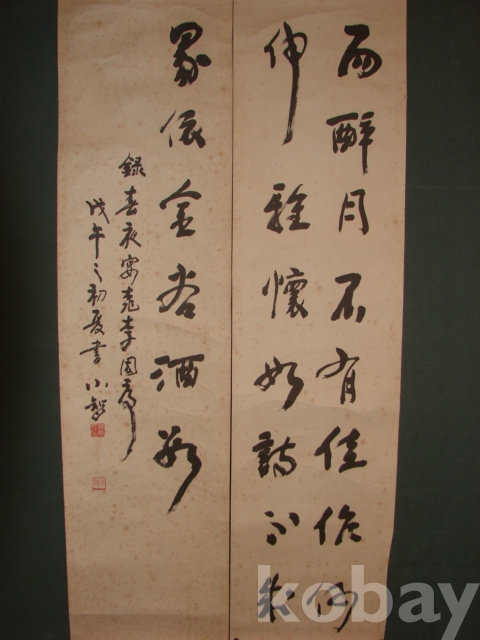 而醉月不有佳作何
伸雅懷如詩不成
罰依金谷酒數
錄春夜宴桃李園序
戊午之初夏書 小
kobay